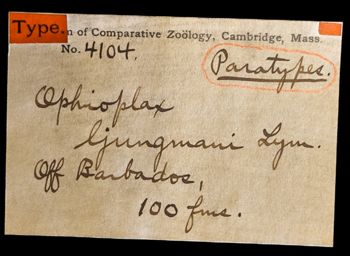 Type.
m of Comparative Zoölogy, Cambridge, Mass.
No. 4104.
Paratypes.
Ophioplax
ljungmani Lym.
Off Barbados,
100 fms.